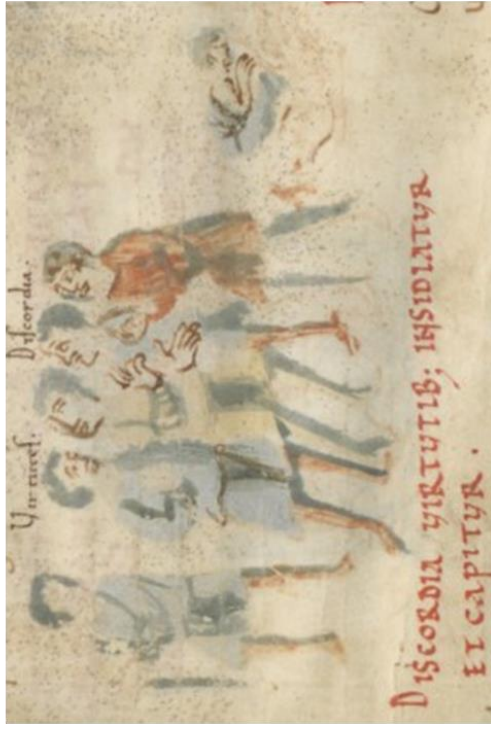 Virtutes: Discordia.
DISCORDIA VIRTUTIB; INSIDIATUR
ET CAPITUR.